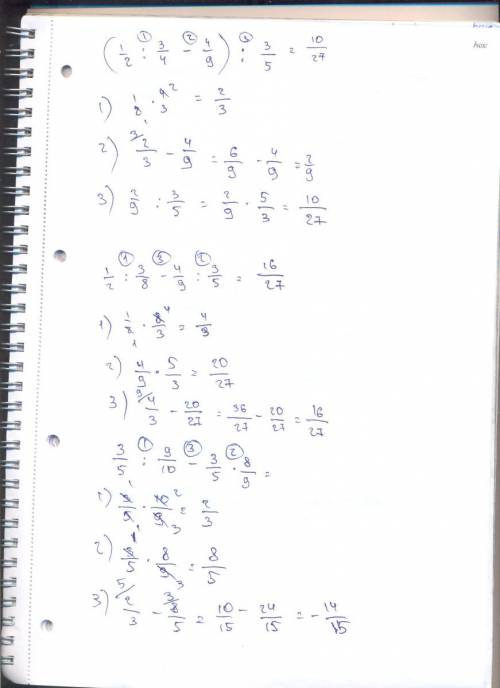 (1/2 : 3/4 - 4/9) : 3/5 = 10/27
1) 1/2 · 4/3 = 2/3
2) 2/3 - 4/9 = 6/9 - 4/9 = 2/9
3) 2/9 : 3/5 = 2/9 · 5/3 = 10/27
1/2 : 3/8 - 4/9 : 3/5 = 16/27
1) 1/2 · 8/3 = 4/3
2) 4/9 · 5/3 = 20/27
3) 4/3 - 20/27 = 36/27 - 20/27 = 16/27
3/5 : 9/10 - 3/5 · 8/9 =
1) 3/5 · 10/9 = 2/3
2) 3/5 · 8/9 = 8/5
3) 2/3 - 8/5 = 10/15 - 24/15 = - 14/15